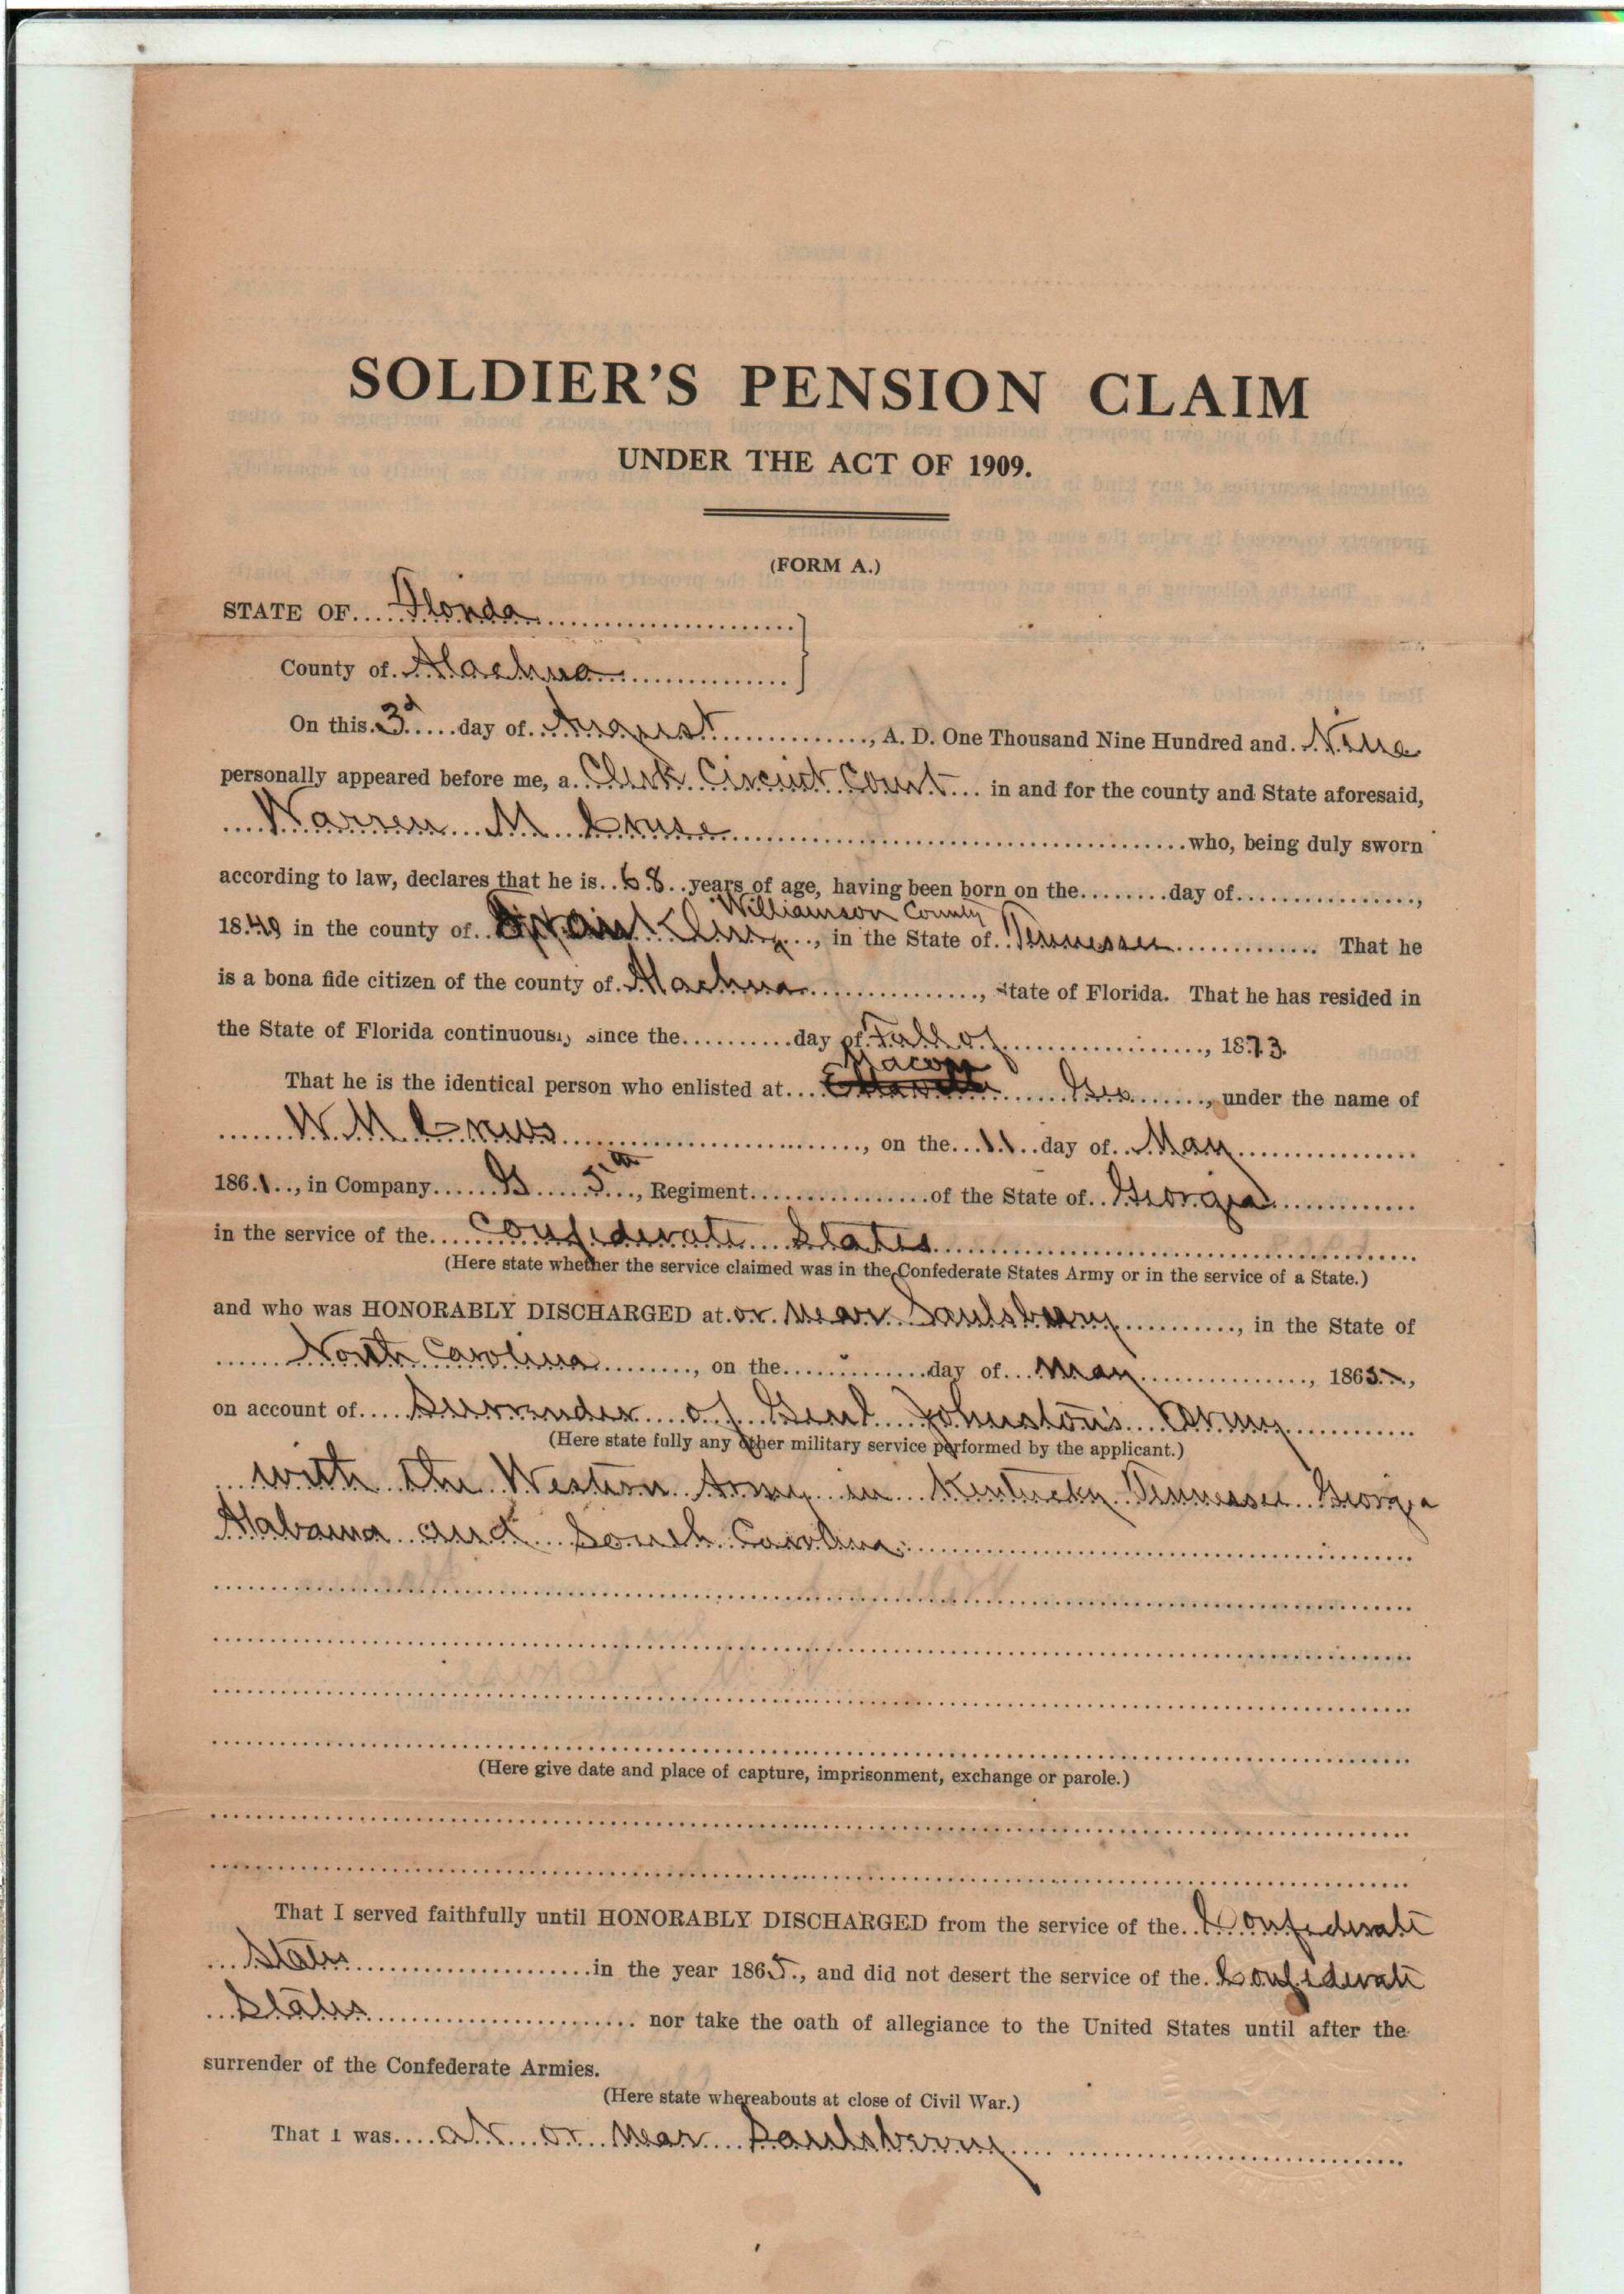 SOLDIER'S PENSION CLAIM
UNDER THE ACT OF 1909.
(FORM A.)
STATE OF Florida
County of Alachua
On this 3d day of August, A. D. One Thousand Nine Hundred and Nine
personally appeared before me, a Clerk Circuit Court in and for the county and State aforesaid,
Warren M Cruse who, being duly sworn
according to law, declares that he is 68 years of age, having been born on the day of
Williamson County
18 in the county of Franklin, in the State of Tennessee That he
is a bona fide citizen of the county of Alachua, State of Florida. That he has resided in
the State of Florida continuously since the day of Fall of, 1873.
Macon
That he is the identical person who enlisted at Geo, under the name of
W M Crews, on the 11 day of May
1861, in Company G 5th, Regiment of the State of Georgia
in the service of the Confiderate States
(Here state whether the service claimed was in the Confederate States Army or in the service of a State.)
and who was HONORABLY DISCHARGED at or near Saulsbury, in the State of
North Carolina, on the day of May, 1865,
on account of Surrender of Genl Johnston's Army
(Here state fully any other military service performed by the applicant.)
with the Western Army in Kentucky Tennessee Georgia
Alabama and South Carolina
(Here give date and place of capture, imprisonment, exchange or parole.)
That I served faithfully until HONORABLY DISCHARGED from the service of the Confederate
States in the year 1865, and did not desert the service of the Confiderate
States nor take the oath of allegiance to the United States until after the
surrender of the Confederate Armies.
(Here state whereabouts at close of Civil War.)
That I was at or near Saulsberry